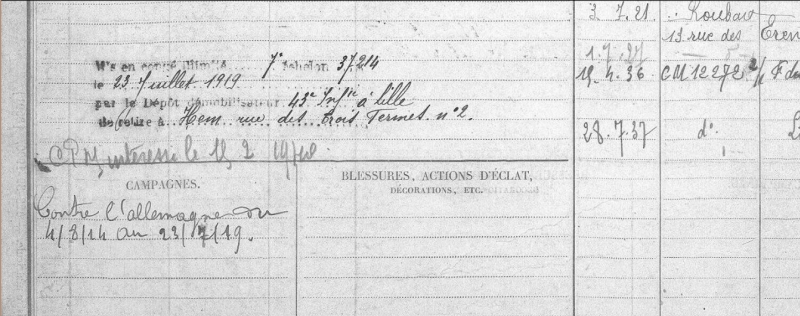 Mis en congé illimité 7e échelon 37214
le 23 Juillet 1919
par le Dépôt démobilisateur 43e Infie à Lille
Se retire à Hem rue des trois Fermes no 2.
le 15 2
CAMPAGNES.
Contre l'allemagne du
4/8/14 au 23/7/19.
BLESSURES, ACTIONS D'ÉCLAT,
DÉCORATIONS, ETC.
3.7.21 Roubaix
rue des
1.7.27
15.4.36 CM 12272
28.7.37 do